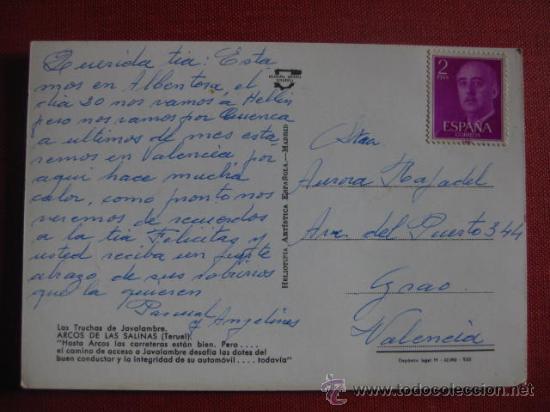 Querida tia: Esta
mos en Albentosa, el
dia 20 nos vamos a Hellin
pero nos vamos por Cuenca
a ultimos de mes esta
remos en Valencia, por
aqui hace mucha
calor, como pronto nos
veremos de recuerdos
a la tia Felicitas y
usted reciba un fuerte
abrazo de sus sobrinos
que la quieren
Pascual
y Angelines
Las Truchas de Javalambre.
ARCOS DE LAS SALINAS (Teruel).
"Hasta Arcos las carreteras están bien. Pero....
el camino de acceso a Javalambre desafía las dotes del
buen conductor y la integridad de su automóvil.... todavía"
HELIOTIPIA ARTÍSTICA ESPAÑOLA.—MADRID
2
PTAS
ESPAÑA
CORREOS
Aurora Rajadel
Ave. del Puerto 344
Grao
Valencia
Depósito legal M
todocoleccion.net